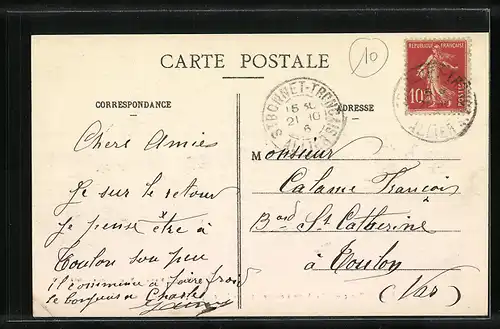 CARTE POSTALE
10
CORRESPONDANCE
ADRESSE
REPUBLIQUE FRANÇAISE
10
POSTES
ST BONNET-TRONÇAIS
15
21 10
6
ALLIER
ALLIER
Chers Amies
Je sur le retour
je pense être à
Toulon sou peu
il commence à faire froid
le bonjour a Charles
Monsieur
Calame François
Bard St Catherine
à Toulon
(Var)